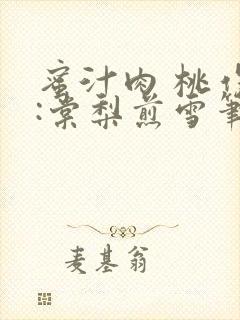 蜜汁肉桃作
:棠梨煎雪笔
麦基翁